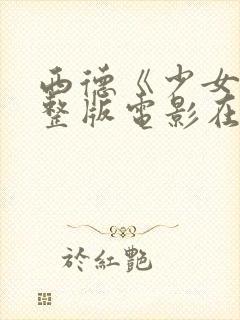 西德《少女
整版电影在
於紅艷